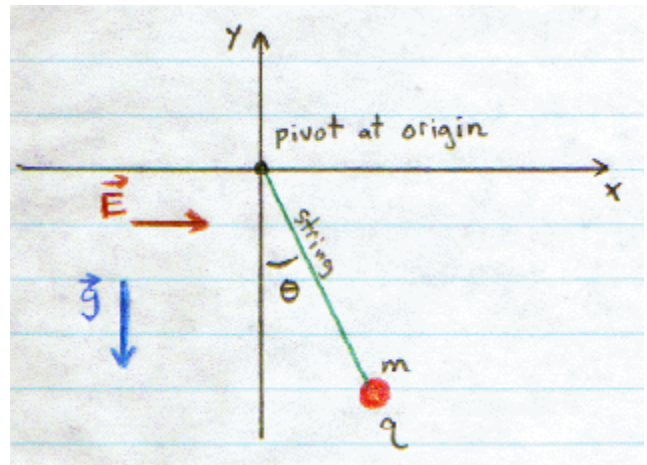 y
pivot at origin
x
E⃗
string
g⃗
θ
m
q